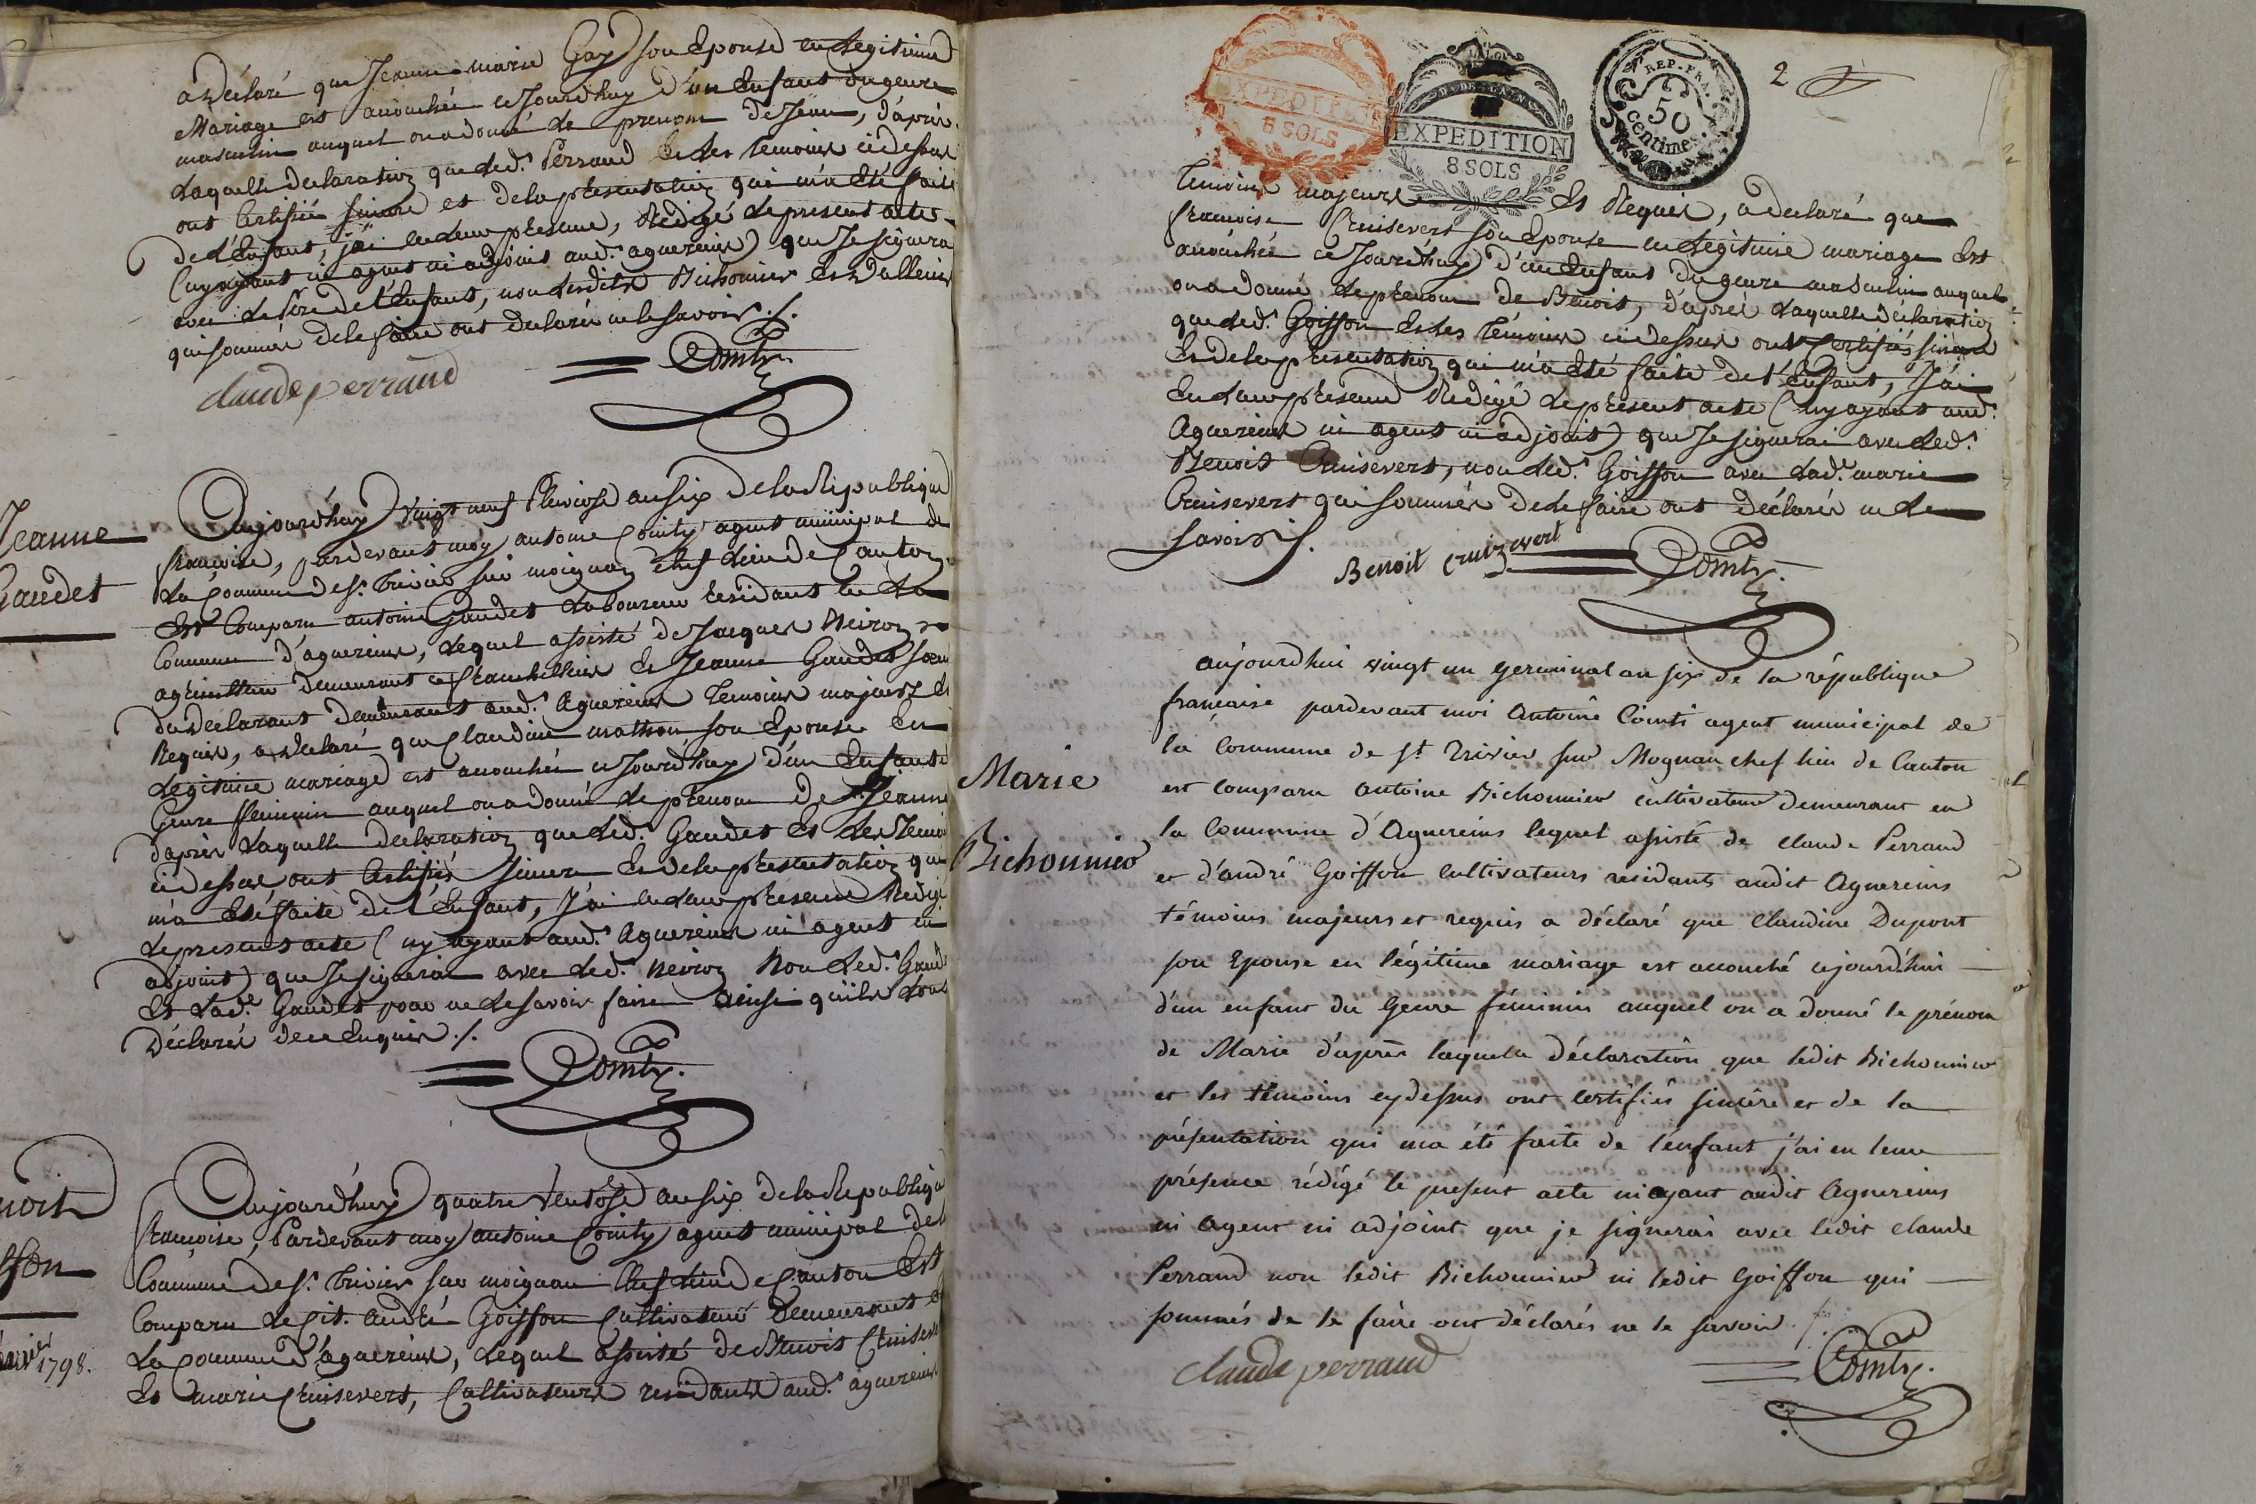 a déclaré que Jeanne marie Gay son Epouse en Legitime
Mariage est accouchée ce Jourd'huy d'un Enfant du genre
masculin auquel on a donné le prenom de Jean, d'après
Laquelle declaration que led. Perraud et les temoins ci dessus
ont Certifié sincere et de la presentation qui m'a Eté faite
de l'Enfant, j'ai en leur presence, Redigé le present acte
(n'y ayant ni agent ni adjoint aud. aguereins) que Je signerai
avec le Pere de l'Enfant, non lesdits Bichonnier et
qui sommés de le faire ont declaré ne le savoir ./.
claude perraud
Comty
Jeanne
Gaudet
Aujourd'huy Vingt neuf Pluviose an six de la Republique
francoise, pardevant moy antoine Comty agent municipal de
La Commune de St. trivier sur moignan chef lieu de Canton
Est Comparu antoine Gaudet Laboureur residant en La
Commune d'aguereins, Lequel assisté de Jacques Neiroz
agriculteur demeurant a francheleins et Jeanne Gaudet soeur
du declarant demeurant aud. Aguereins temoins majeurs et
Requis, a declaré que Claudine mathon son Epouse En
Legitime mariage est accouchée ce Jourd'huy d'un Enfant
Genre feminin auquel on a donné le prenom de Jeanne
d'après Laquelle declaration que led. Gaudet et les temoins
ci dessus ont Certifiés sincere et de la presentation qui
m'a Eté faite de l'Enfant, J'ai en leur presence Redigé
le present acte (n'y ayant aud. Aguereins ni agent ni
adjoint) que Je signerai avec led. Neiroz Non led. Gaudet
et Lad.e Gaudet pour ne le savoir faire ainsi qu'ils l'ont
Déclarés de ce Enquis ./.
Comty
noit
ffon
1798.
Aujourd'huy quatre Ventôse an six de la Republique
francoise, Pardevant moy antoine Comty agent municipal de la
Commune de St. trivier sur moignan Chef lieu de Canton Est
Comparu le Cit. andré Goiffon Cultivateur Demeurant en
La Commune d'aguereins, Lequel assisté de Benoit Cruisevert
Et marie Cruisevert, Cultivateurs residants aud. aguereins
EXPEDITION
8 SOLS
EXPEDITION
8 SOLS
REP. FRA.
50
centimes
2
temoins majeurs Et Requis, a declaré que
francoise Cruisevert son Epouse en Legitime mariage Est
accouchée ce Jourd'huy d'un Enfant du genre masculin auquel
on a donné le prenom de Benoit, d'après Laquelle déclaration
que led. Goiffon Et les temoins ci dessus ont Certifiés sincere
Et de la presentation qui m'a Eté faite de l'Enfant, J'ai
En leur presence Redigé le present acte (n'y ayant aud.
Aguereins ni agent ni adjoint) que Je signerai avec led.
Benoit Cruisevert, non led. Goiffon avec Lad. marie
Cruisevert qui sommés de le faire ont déclarés ne le
savoir ./.
Benoit cruizevert
Comty
Marie
Bichonnier
aujourdhui vingt un germinal an six de la république
française pardevant moi Antoine Comti agent municipal de
la Commune de St Trivier sur Mognan chef lieu de Canton
est comparu antoine Bichonnier cultivateur demeurant en
la Commune d'Aguereins lequel assisté de claude Perraud
et d'andré Goiffon Cultivateurs residants audit Aguereins
témoins majeurs et requis a déclaré que Claudine Dupont
son Epouse en légitime mariage est accouché cejourd'hui
d'un enfant du Genre féminin auquel on a donné le prénom
de Marie d'après laquelle déclaration que ledit Bichonnier
et les témoins cydessus ont certifiés sincère et de la
présentation qui ma été faite de l'enfant j'ai en leur
présence rédigé le présent acte n'iayant audit Aguereins
ni Agent ni adjoint que je signerai avec ledit claude
Perraud non ledit Bichonnier ni ledit Goiffon qui
sommés de le faire ont déclarés ne le savoir ./.
claude perraud
Comty